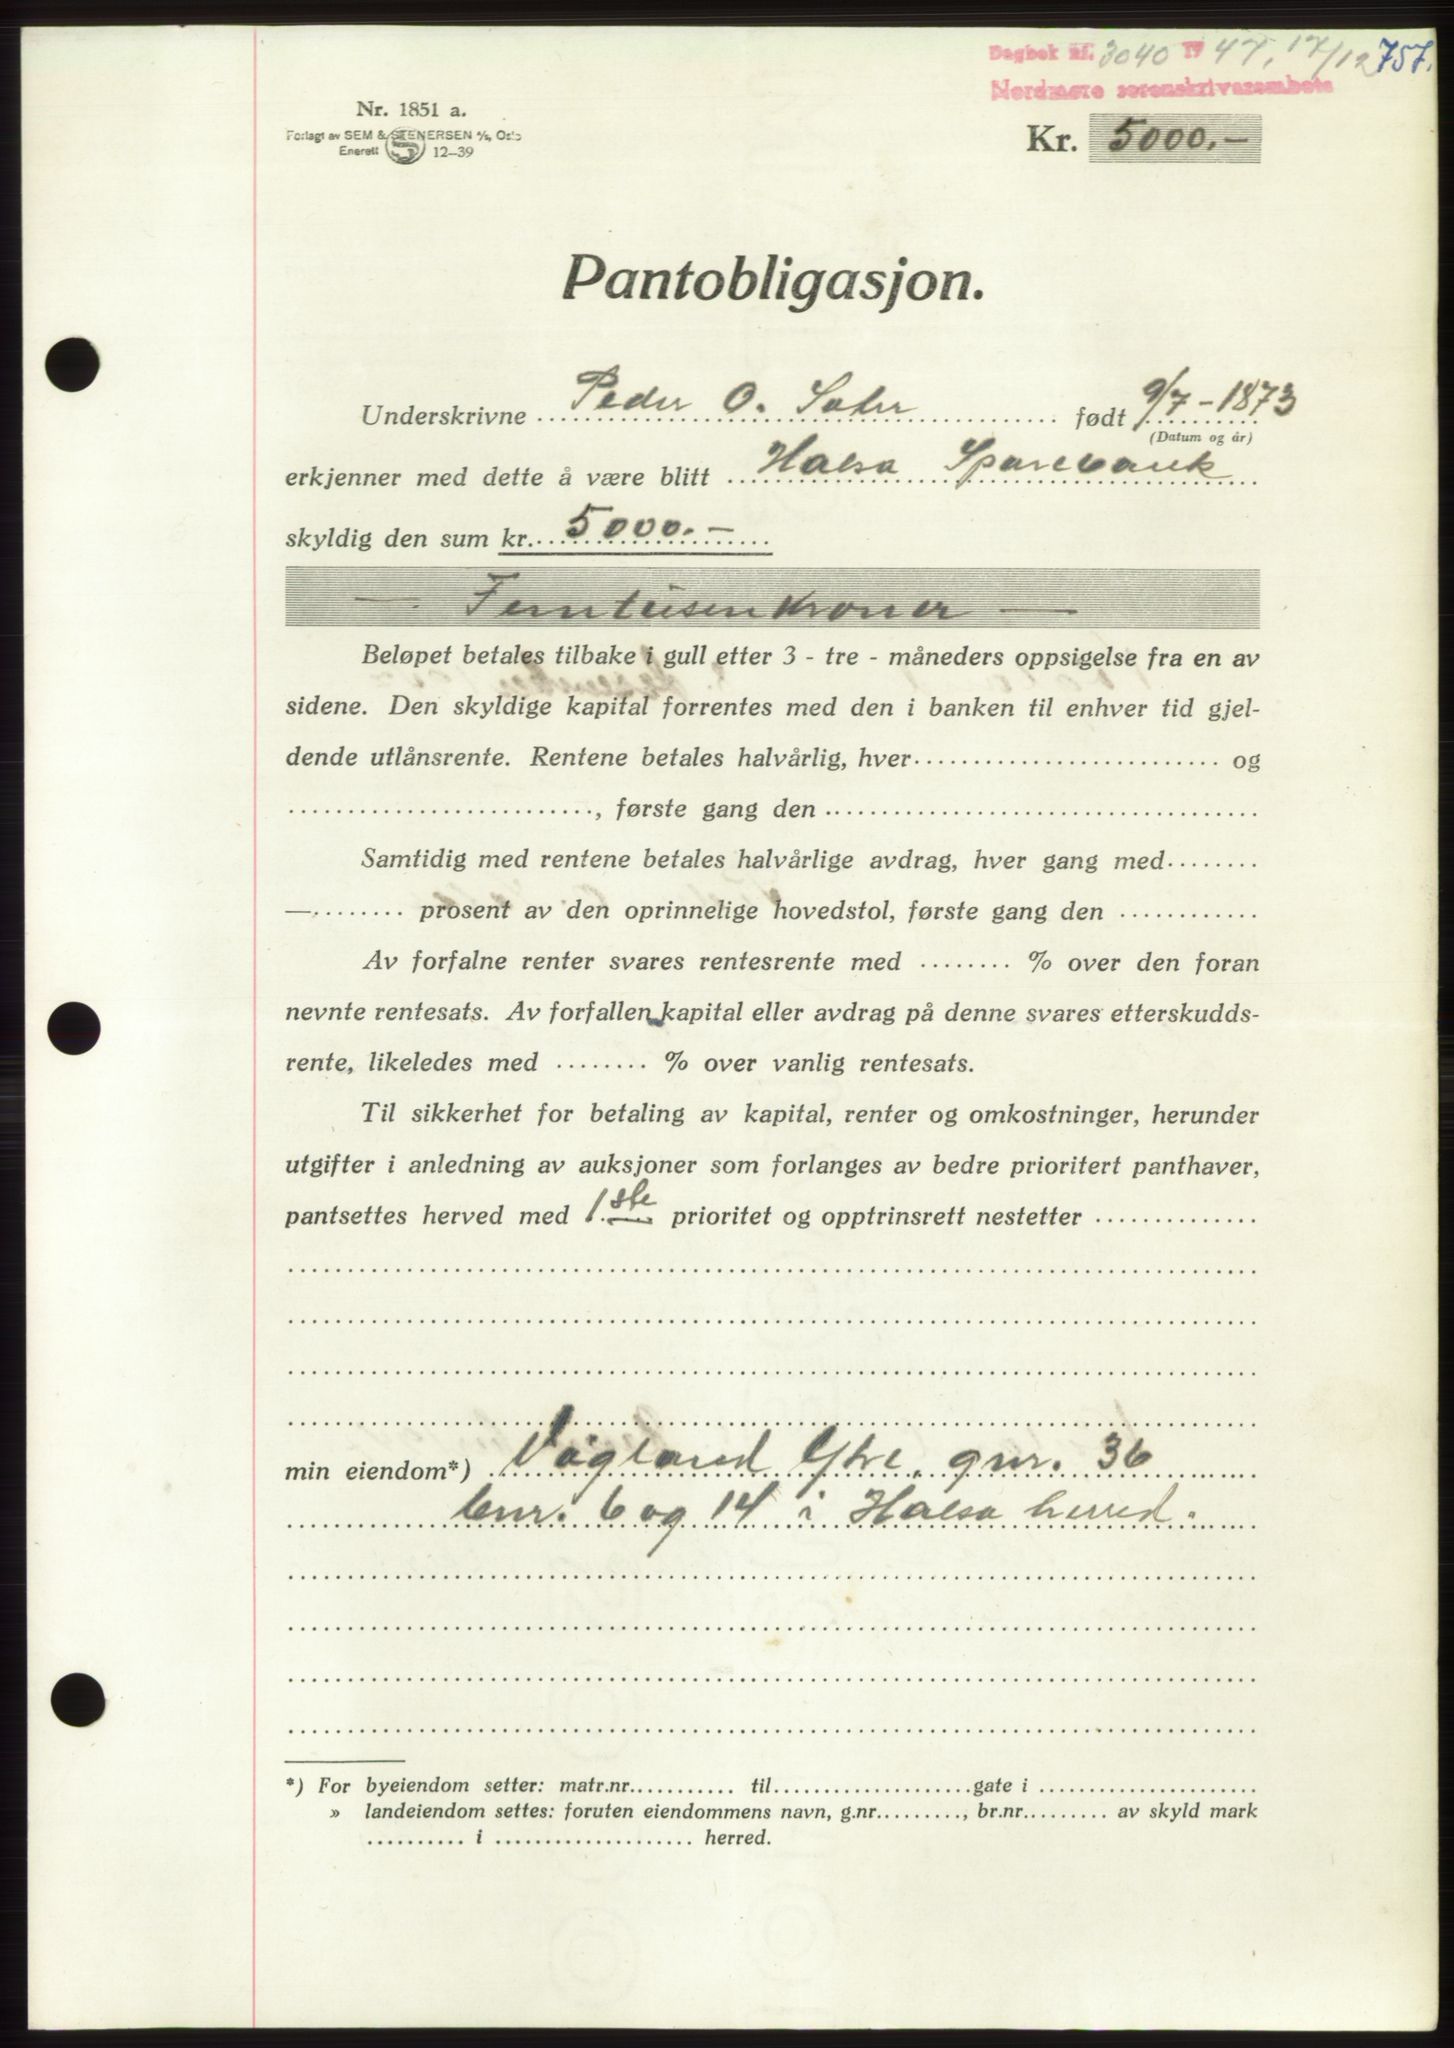 Dagbok nr. 3040 19 47, 17/12 757.
Nordmøre sorenskriverembete
Nr. 1851 a.
Forlagt av SEM & STENERSEN A/S, Oslo
Enerett S 12-39
Kr. 5000.-
Pantobligasjon.
Underskrivne Peder O. Sæter født 9/7-1873
(Datum og år)
erkjenner med dette å være blitt Halsa Sparebank
skyldig den sum kr. 5000.-
— Femtusenkroner —
Beløpet betales tilbake i gull etter 3 - tre - måneders oppsigelse fra en av
sidene. Den skyldige kapital forrentes med den i banken til enhver tid gjel-
dende utlånsrente. Rentene betales halvårlig, hver .......... og
.........., første gang den ..........
Samtidig med rentene betales halvårlige avdrag, hver gang med ........
—........ prosent av den oprinnelige hovedstol, første gang den ..........
Av forfalne renter svares rentesrente med ........ % over den foran
nevnte rentesats. Av forfallen kapital eller avdrag på denne svares etterskudds-
rente, likeledes med ........ % over vanlig rentesats.
Til sikkerhet for betaling av kapital, renter og omkostninger, herunder
utgifter i anledning av auksjoner som forlanges av bedre prioritert panthaver,
pantsettes herved med 1.ste prioritet og opptrinsrett nestetter ..........
min eiendom*) Vågland Ytre, gnr. 36
bnr. 6 og 14 i Halsa herred.
*) For byeiendom setter: matr.nr.......... til..........gate i ..........
» landeiendom settes: foruten eiendommens navn, g.nr.........., br.nr.......... av skyld mark
.......... i .......... herred.